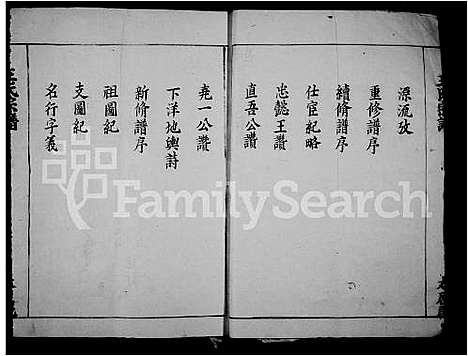 源流攷
重修譜序
續脩譜序
仕宦紀略
忠懿王讚
直吾公讚
堯一公讚
下洋地輿詩
新脩譜序
祖圖紀
支圖紀
名行字義
FamilySearch